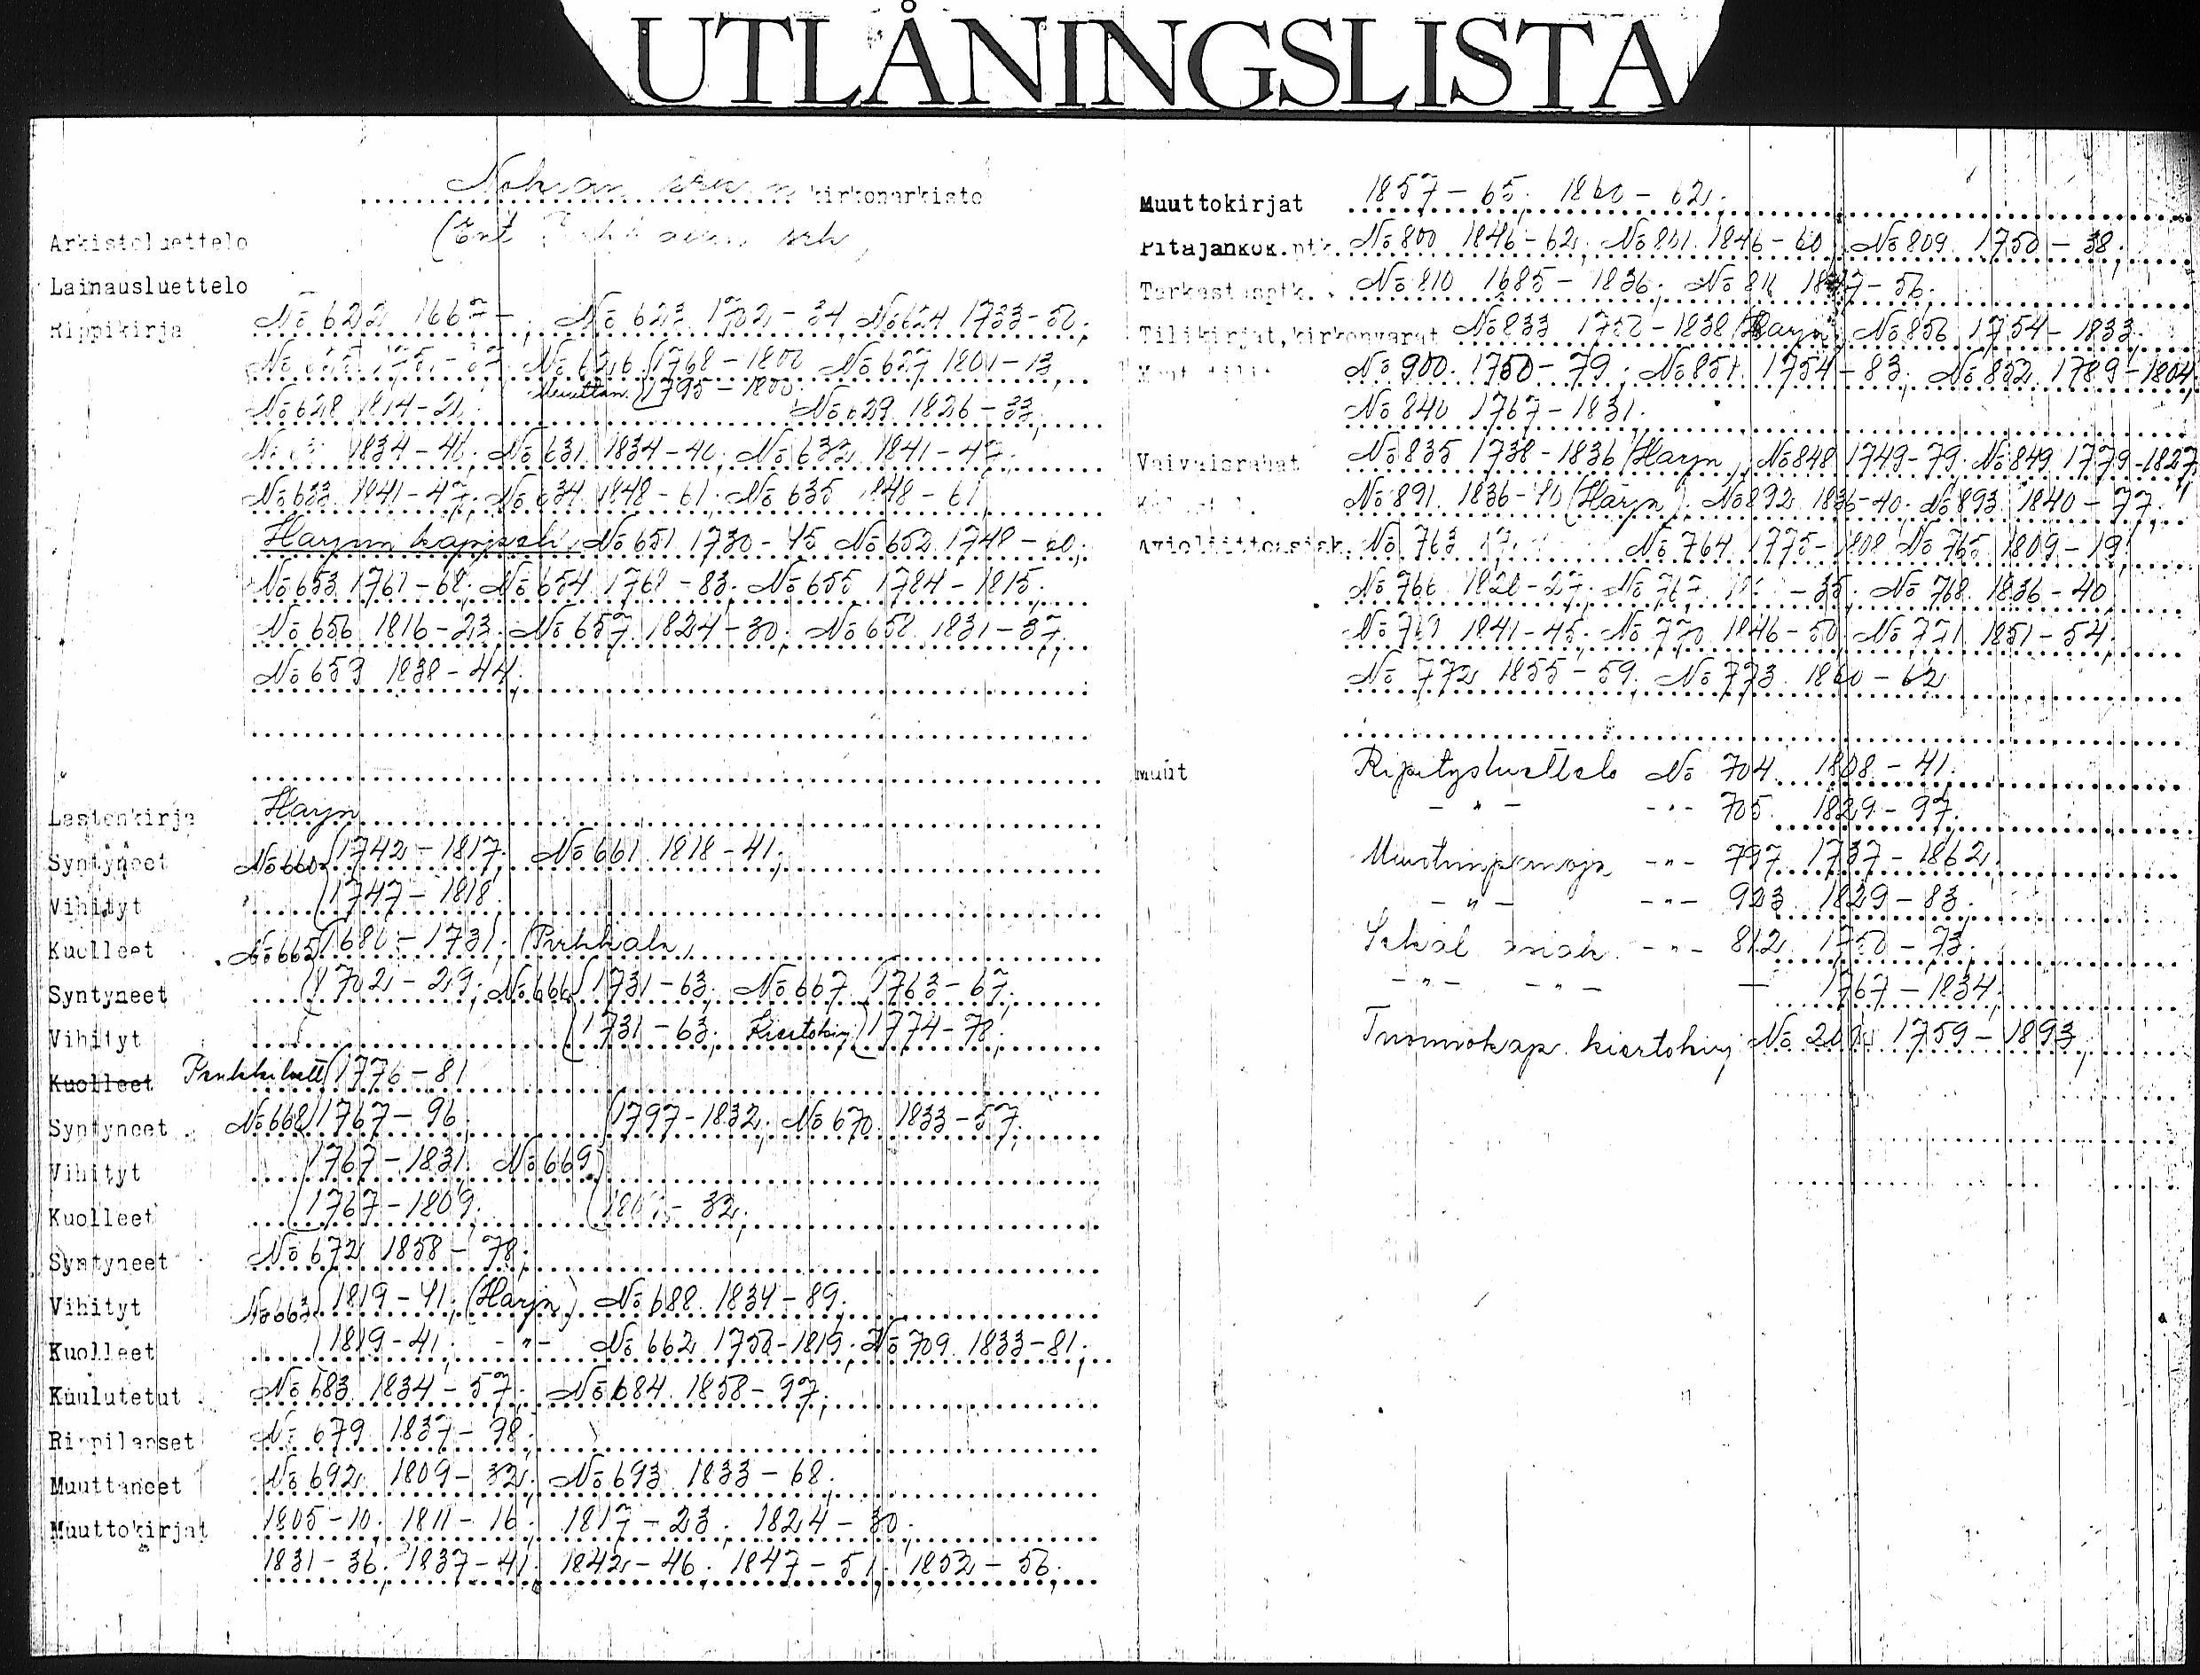 UTLÅNINGSLISTA
Nokian srk:n kirkonarkisto
(Ent. Pirkkalan srk)
Arkistoluettelo
Lainausluettelo
Rippikirja No 622 1667 - ; No 623 1702 - 34, No 624 1733 - 50;
No 626 1768 - 1800 No 627 1801 - 13,
Muuttan. 1795 - 1800
No 628 1814 - 21; No 629 1826 - 33;
1834 - 40; No 631 1834 - 40; No 632 1841 - 47;
No 633 1841 - 47; No 634 1848 - 61; No 635 1848 - 61
Harjun kappeli, No 651 1730 - 45 No 652 1748 - 60;
No 653 1761 - 68; No 654 1768 - 83; No 655 1784 - 1815;
No 656 1816 - 23; No 657 1824 - 30; No 658 1831 - 37;
No 659 1838 - 44;
Lastenkirja Harjn
Syntyneet No 660 (1742 - 1817; No 661 1818 - 41;
Vihityt (1747 - 1818
Kuolleet No 665 (1686 - 1731; (Pirkkala)
Syntyneet (1702 - 29; No 666 (1731 - 63; No 667 (1763 - 67;
Vihityt (1731 - 63; Kiertokirj (1774 - 78;
Kuolleet (1776 - 81
Syntyneet No 668 (1767 - 96 (1797 - 1832; No 670 1833 - 57;
Vihityt (1767 - 1831; No 669
Kuolleet (1767 - 1809; - 32;
Syntyneet No 672 1858 - 78;
Vihityt No 663 (1819 - 41; (Harjn) No 688 1834 - 89;
Kuolleet (1819 - 41; - " - No 662 1750 - 1819; No 709 1833 - 81;
Kuulutetut No 683 1834 - 57; No 684 1858 - 97;
Rippilapset No 679 1837 - 98;
Muuttaneet No 692 1809 - 32; No 693 1833 - 68;
Muuttokirjat 1805 - 10; 1811 - 16; 1817 - 23; 1824 - 30;
1831 - 36; 1837 - 41; 1842 - 46; 1847 - 51; 1852 - 56;
Muuttokirjat 1857 - 65; 1860 - 62;
Pitäjänkok.ptk. No 800 1846 - 62; No 801 1846 - 60; No 809 1750 - 38;
Tarkastusptk. No 810 1685 - 1836; No 811 1837 - 56;
Tilikirjat, kirkonvarat No 833 1750 - 1838 (Harjn) No 856 1754 - 1833;
No 900 1750 - 79; No 851 1754 - 83; No 852 1789 - 1804;
No 840 1767 - 1831;
Vaivaisrahat No 835 1738 - 1836 (Harjn), No 848 1749 - 79; No 849 1779 - 1827;
No 891 1836 - 40 (Harjn). No 892 1836 - 40; No 893 1840 - 77;
Avioliittoasiak. No 763 No 764 1775 - 1808 No 765 1809 - 19;
No 766 1820 - 27; No 767 - 35; No 768 1836 - 40
No 769 1841 - 45; No 770 1846 - 50; No 771 1851 - 54;
No 772 1855 - 59; No 773 1860 - 62
Muut Ripitysluettelo No 704 1808 - 41;
- " - - " - 705 1829 - 97;
- " - 797 1737 - 1862;
- " - - " - 923 1829 - 83;
Sekal. asiak. - " - 812 1750 - 73;
- " - - " - — 1767 - 1834;
Tuomiokap. kiertokirj No 1759 - 1893;